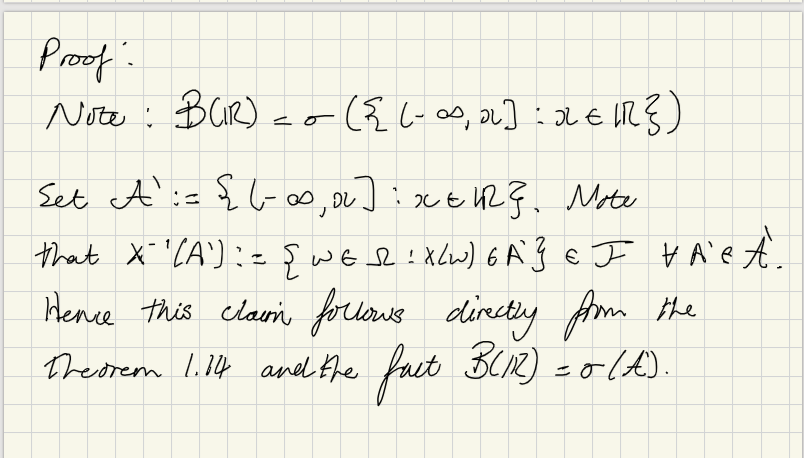 Proof:
Note: B(ℝ) = σ({(-∞, x] : x ∈ ℝ})
Set A' := {(-∞, x] : x ∈ ℝ}. Note
that X⁻¹(A') := {ω ∈ Ω : X(ω) ∈ A'} ∈ F ∀ A' ∈ A'.
Hence this claim follows directly from the
Theorem 1.14 and the fact B(ℝ) = σ(A').